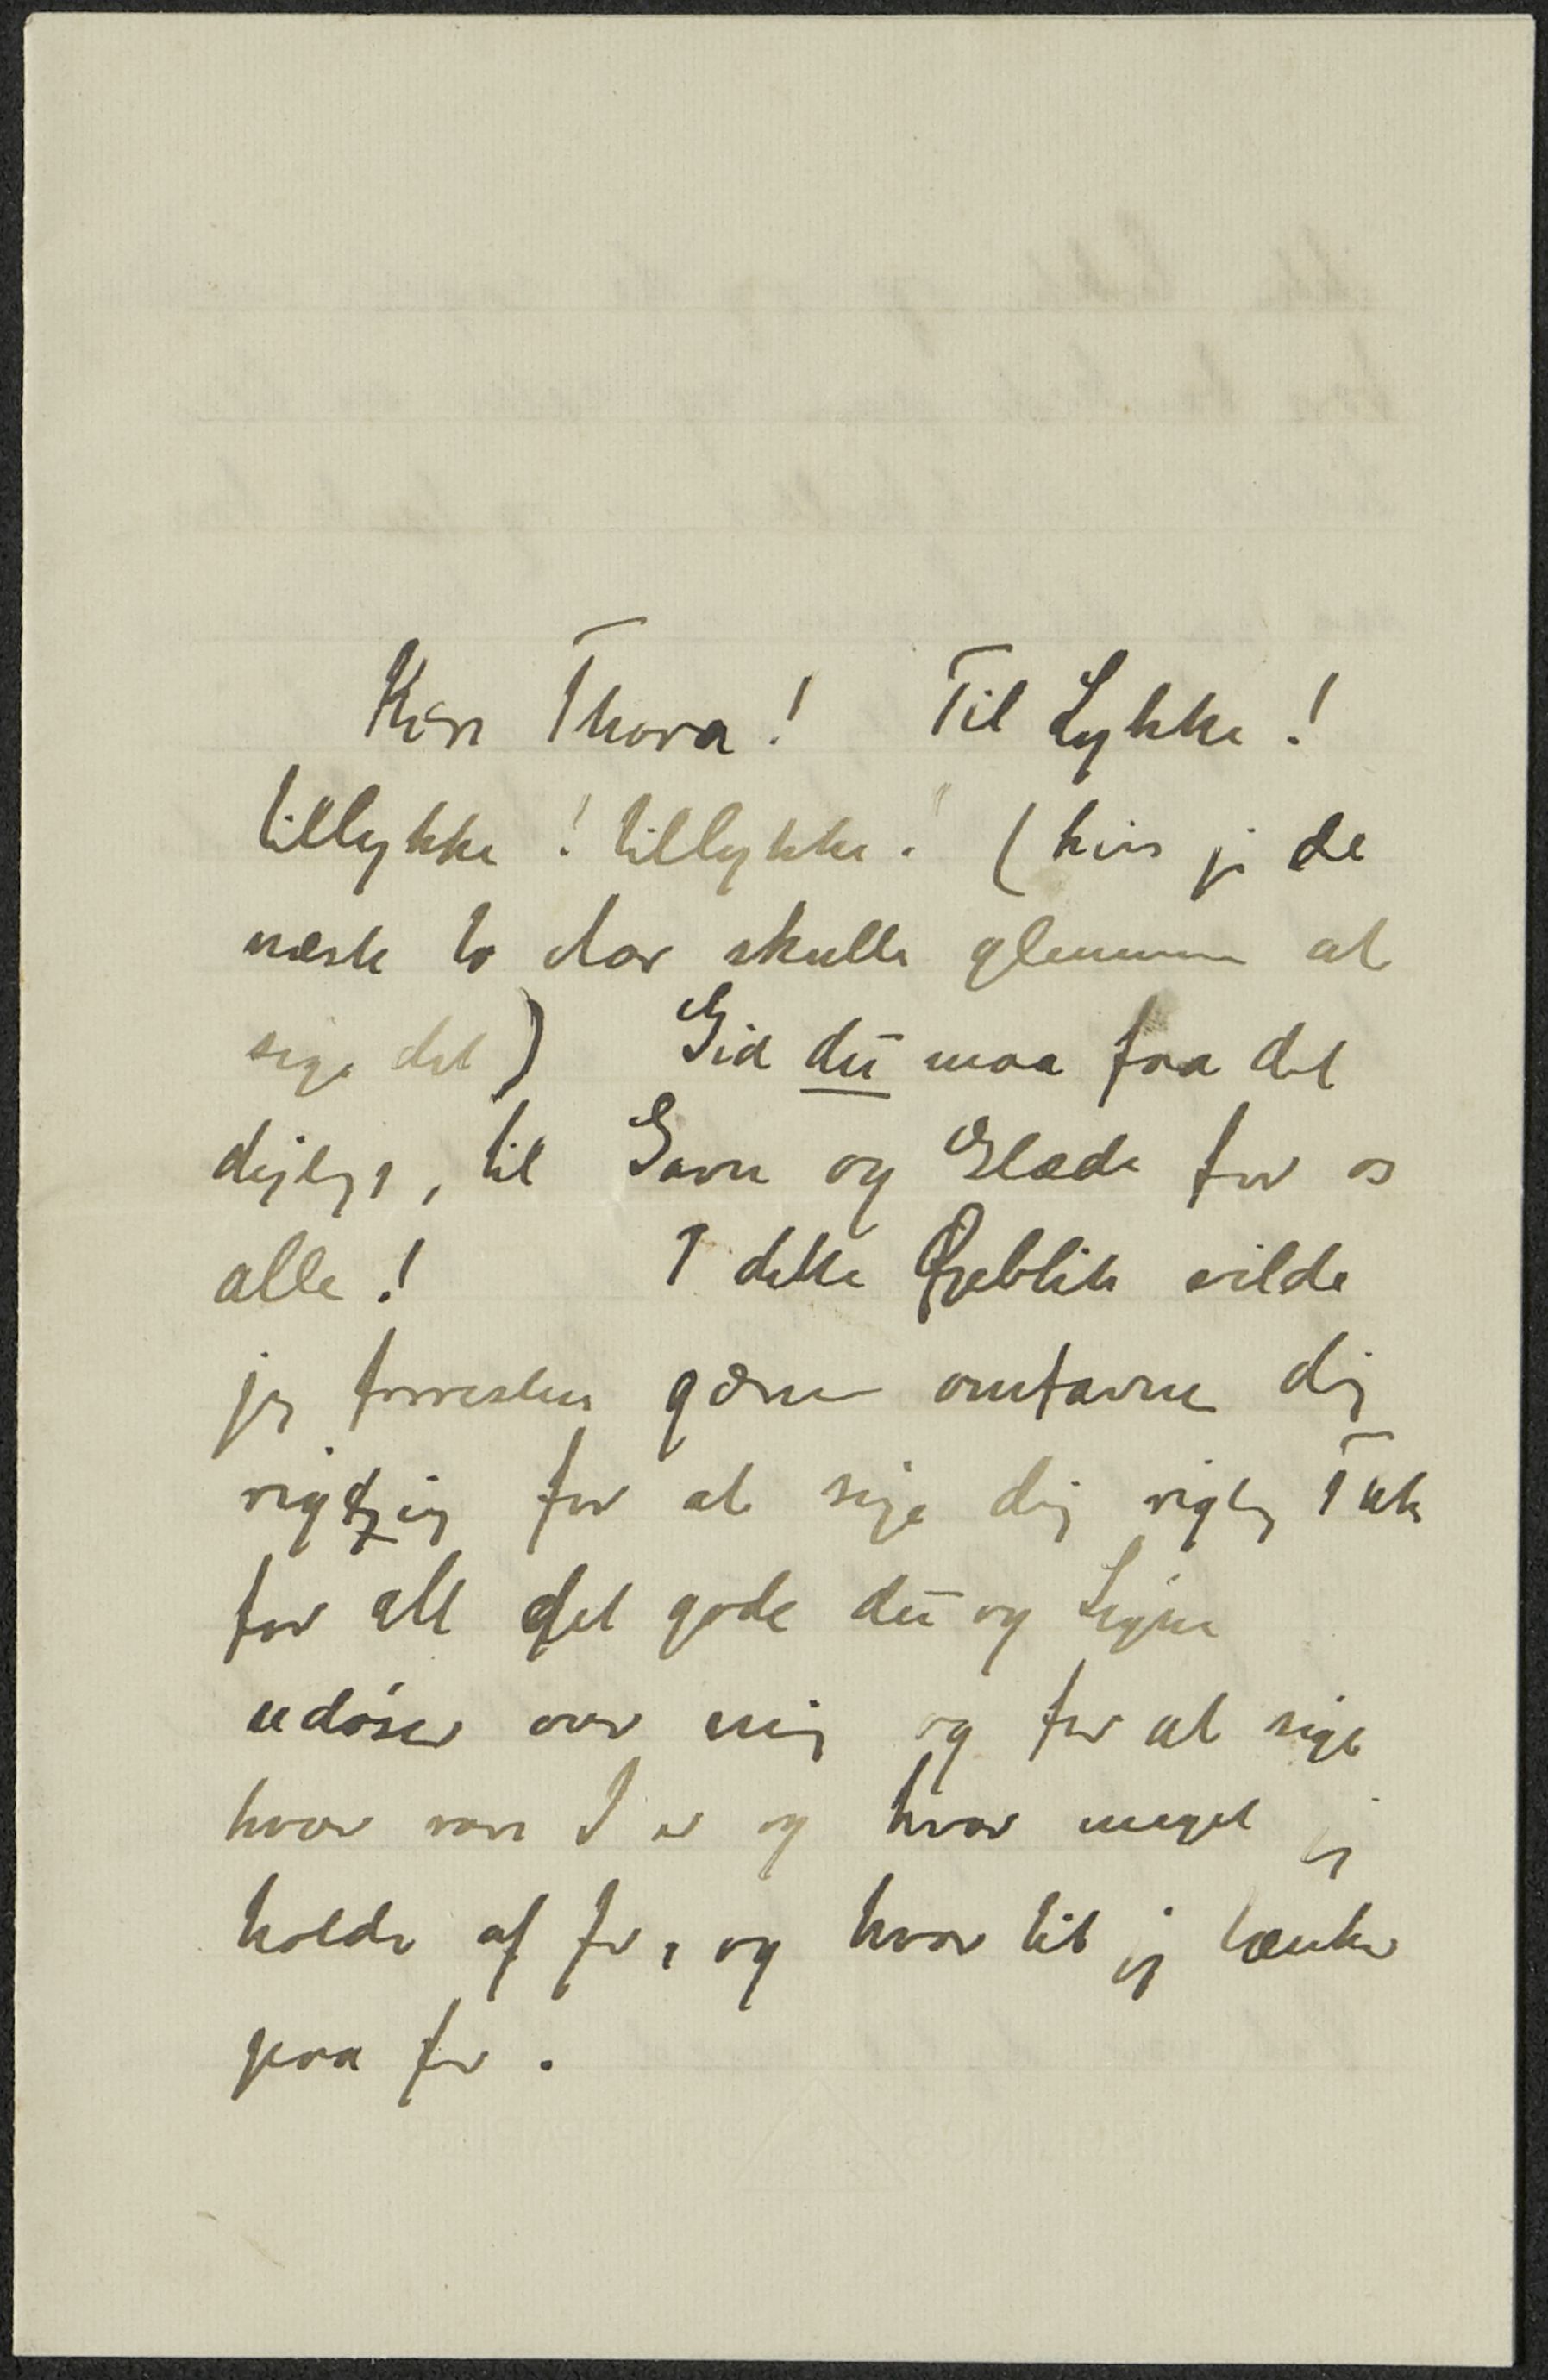 Kære Thora! Til Lykke!
tillykke! tillykke! (hvis jeg de
næste to Aar skulle glemme at
sige det) Gid du maa faa det
dejligt, til Gavn og Glæde for os
alle! I dette Øjeblik vilde
jeg forresten gærne omfavne dig
rigtig for at sige dig rigtig Tak
for alt det gode du og Signe
udøser over mig og for at sige
hvor rare I er og hvor meget jeg
holder af Jer, og hvor tit jeg tænker
paa Jer.